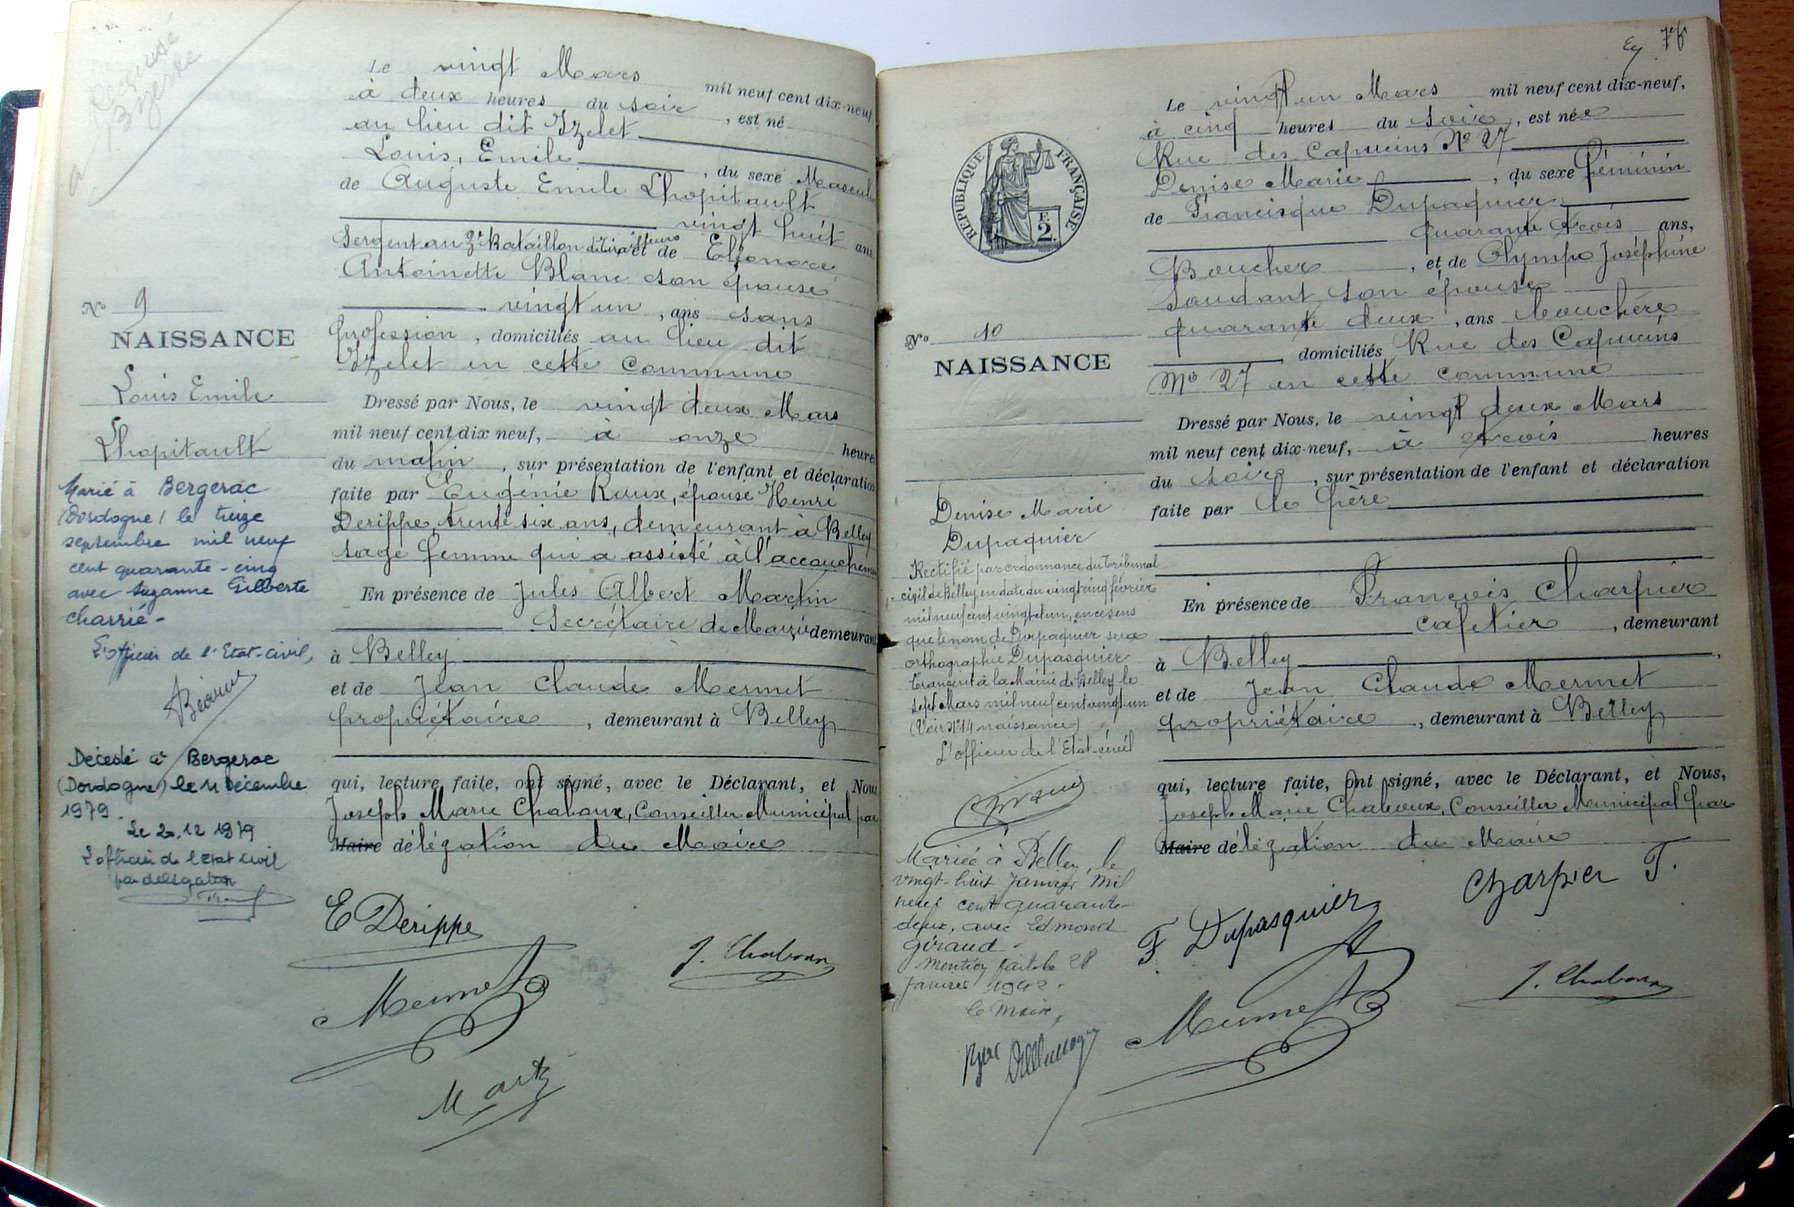 N° 9
NAISSANCE
Louis Emile
Lhopitault
Marié à Bergerac
(Dordogne) le treize
septembre mil neuf
cent quarante-cinq
avec Suzanne Gilberte
Charrié -
L'officier de l'Etat-civil,
Décédé à Bergerac
(Dordogne) le 11 Décembre
1979.
Le 20.12 1979
L'officier de l'Etat civil
par délégation
Le vingt Mars mil neuf cent dix-neuf
à deux heures du soir, est né
au lieu dit Izelet
Louis, Emile, du sexe Masculin
de Auguste Emile Lhopitault
vingt huit ans
Sergent au 3e Bataillon de Tirailleurs et de Eléonore
Antoinette Blanc son épouse
vingt un, ans sans
profession, domiciliés au lieu dit
Izelet en cette commune
Dressé par Nous, le vingt deux Mars
mil neuf cent dix neuf, à onze heures
du matin, sur présentation de l'enfant et déclaration
faite par Eugénie Roux, épouse Henri
Derippe, trente six ans, demeurant à Belley
sage femme qui a assisté à l'accouchement
En présence de Jules Albert Martin
Secrétaire de Mairie demeurant
à Belley
et de Jean Claude Mermet
propriétaire, demeurant à Belley
qui, lecture faite, ont signé, avec le Déclarant, et Nous
Joseph Marie Chaboux, Conseiller Municipal par
Maire délégation du Maire
E Derippe
J. Chaboux
Mermet
76
RÉPUBLIQUE FRANÇAISE
2 F.
N° 10
NAISSANCE
Denise Marie
Dupaquier
Rectifié par ordonnance du Tribunal
civil de Belley en date du vingt cinq février
mil neuf cent vingt et un, en ce sens
que le nom de Dupaquier sera
orthographié Dupasquier
Transcrit à la Mairie de Belley le
sept Mars mil neuf cent vingt un
(Voir N° 14 naissance)
L'officier de l'Etat-civil
Mariée à Belley, le
vingt-huit Janvier mil
neuf cent quarante-
deux, avec Edmond
Giraud.
Mention faite le 28
Janvier 1942.
le Maire,
Le vingt un Mars mil neuf cent dix-neuf,
à cinq heures du soir, est née
Rue des Capucins N° 27
Denise Marie, du sexe Féminin
de Francisque Dupaquier
quarante trois ans,
Boucher, et de Olympe Joséphine
Soudant son épouse
quarante deux, ans bouchère
domiciliés Rue des Capucins
N° 27 en cette commune
Dressé par Nous, le vingt deux Mars
mil neuf cent dix-neuf, à trois heures
du soir, sur présentation de l'enfant et déclaration
faite par le père
En présence de François Charpier
cafetier, demeurant
à Belley,
et de Jean Claude Mermet
propriétaire, demeurant à Belley
qui, lecture faite, ont signé, avec le Déclarant, et Nous,
Joseph Marie Chaboux, Conseiller Municipal par
Maire délégation du Maire
Charpier F.
F. Dupasquier
J. Chaboux
Mermet